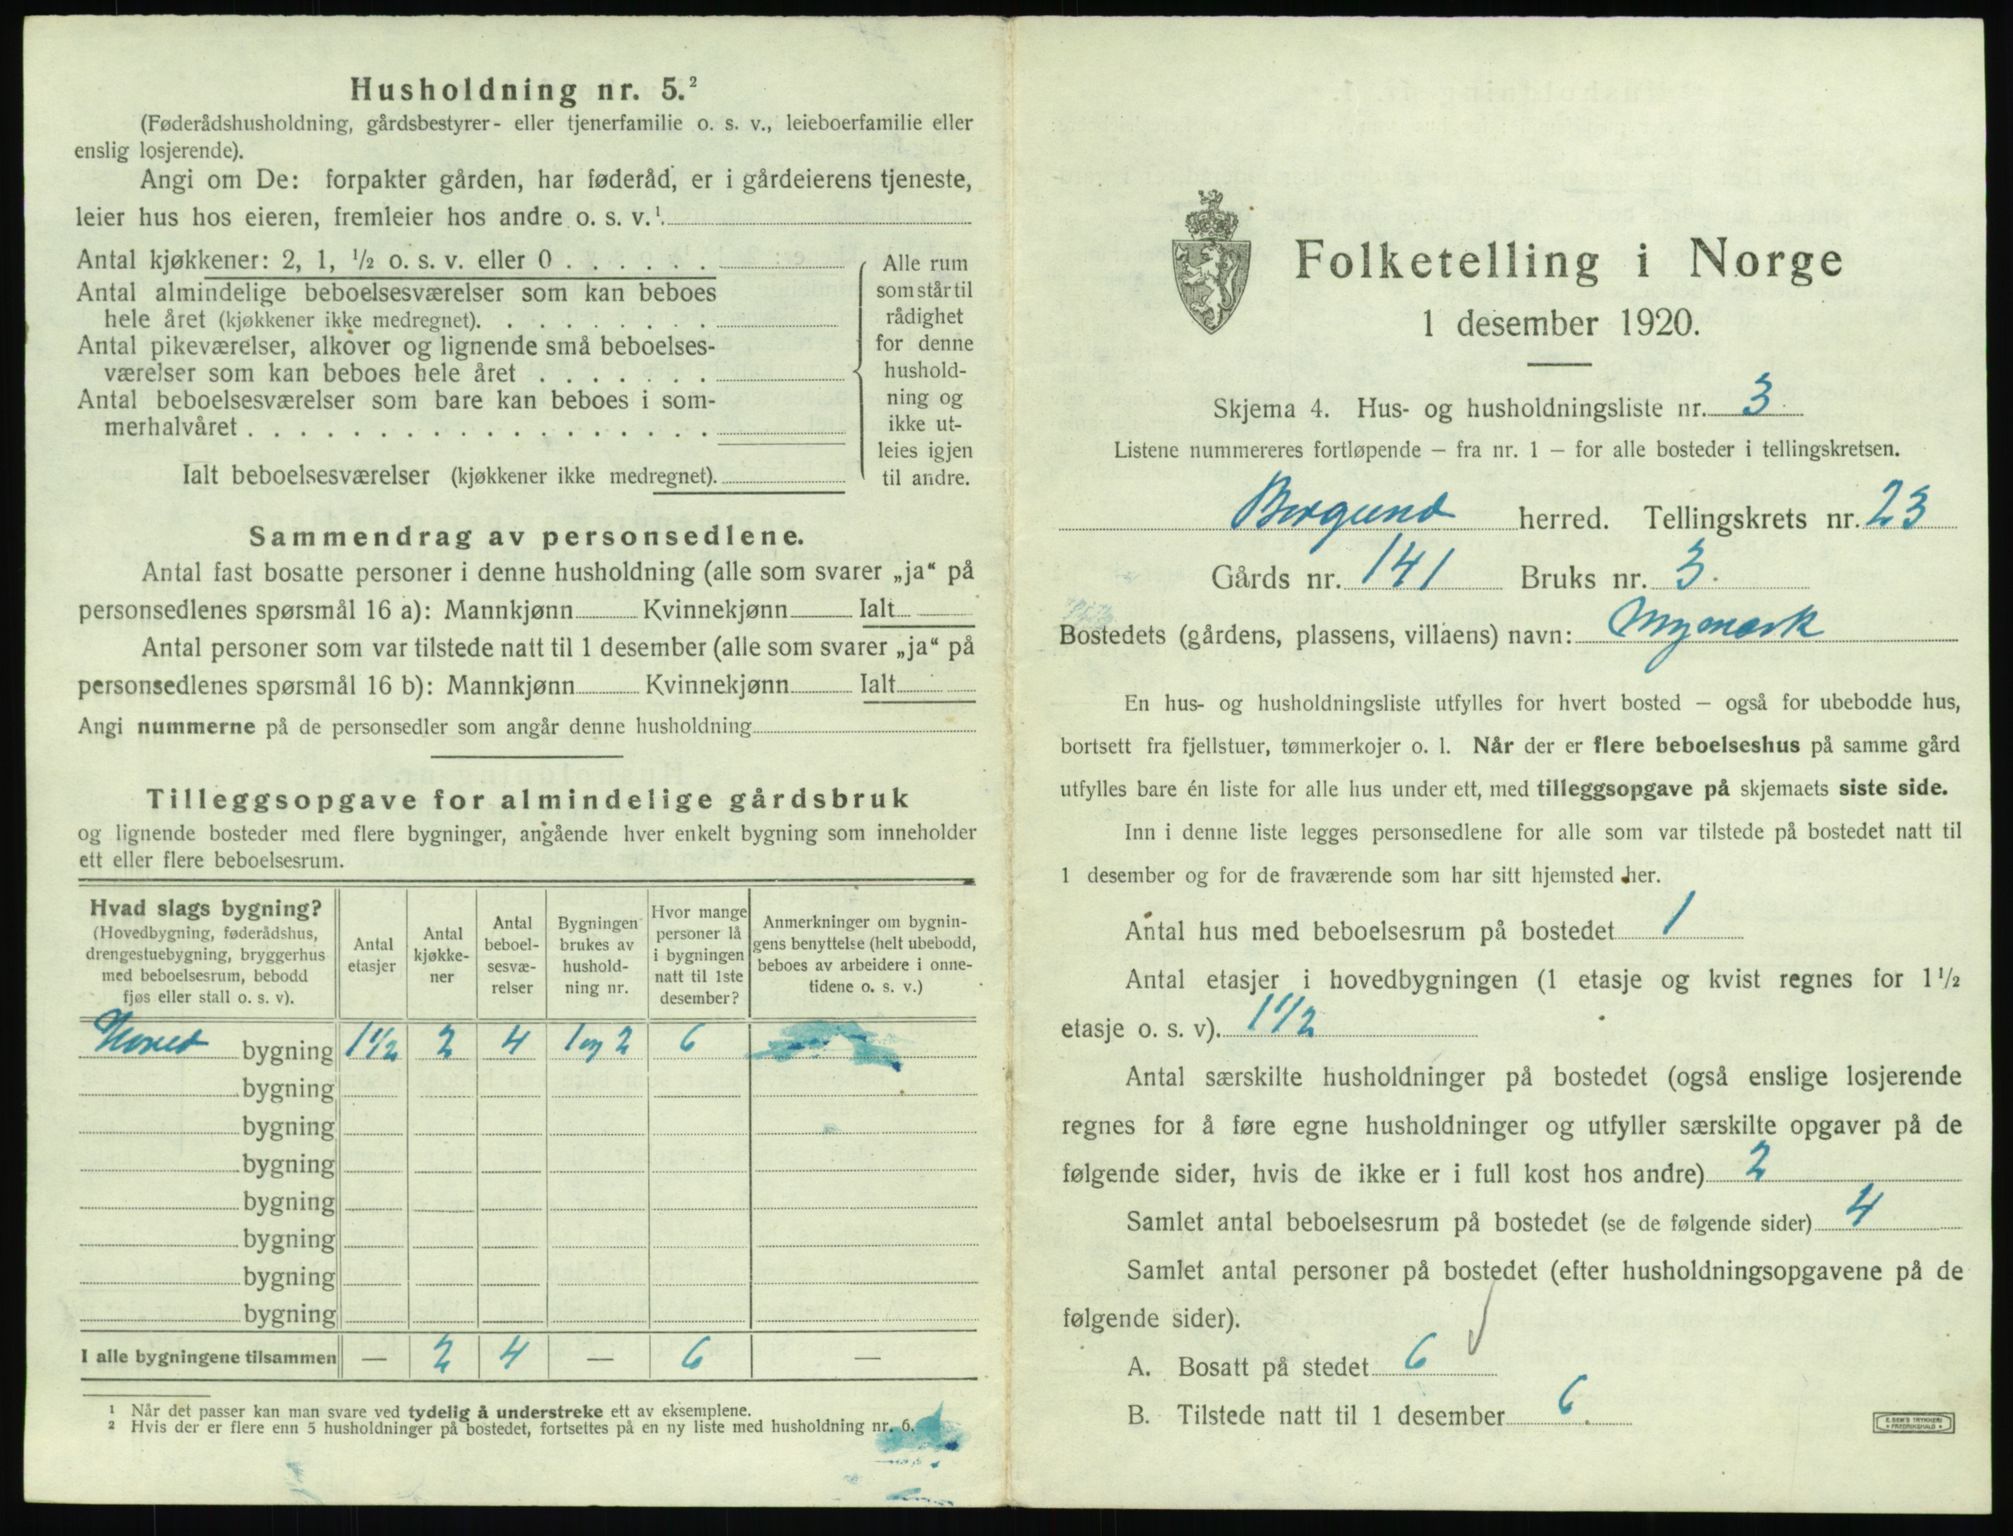 Husholdning nr. 5.²
(Føderådshusholdning, gårdsbestyrer- eller tjenerfamilie o. s. v., leieboerfamilie eller
enslig losjerende).
Angi om De: forpakter gården, har føderåd, er i gårdeierens tjeneste,
leier hus hos eieren, fremleier hos andre o. s. v.¹
Antal kjøkkener: 2, 1, ½ o. s. v. eller 0 . . . . . .
Antal almindelige beboelsesværelser som kan beboes
hele året (kjøkkener ikke medregnet). . . . . . . . .
Antal pikeværelser, alkover og lignende små beboelses-
værelser som kan beboes hele året . . . . . . .
Antal beboelsesværelser som bare kan beboes i som-
merhalvåret . . . . . . . . . . . . . . . . . .
Ialt beboelsesværelser (kjøkkener ikke medregnet).
Alle rum
som står til
rådighet
for denne
hushold-
ning og
ikke ut-
leies igjen
til andre.
Sammendrag av personsedlene.
Antal fast bosatte personer i denne husholdning (alle som svarer „ja“ på
personsedlenes spørsmål 16 a): Mannkjønn Kvinnekjønn Ialt
Antal personer som var tilstede natt til 1 desember (alle som svarer „ja“ på
personsedlenes spørsmål 16 b): Mannkjønn Kvinnekjønn Ialt
Angi nummerne på de personsedler som angår denne husholdning
Tilleggsopgave for almindelige gårdsbruk
og lignende bosteder med flere bygninger, angående hver enkelt bygning som inneholder
ett eller flere beboelsesrum.
Hvad slags bygning?
(Hovedbygning, føderådshus,
drengestuebygning, bryggerhus
med beboelsesrum, bebodd
fjøs eller stall o. s. v).
Antal
etasjer
Antal
kjøkke-
ner
Antal
beboel-
sesvæ-
relser
Bygningen
brukes av
hushold-
ning nr.
Hvor mange
personer lå
i bygningen
natt til 1ste
desember?
Anmerkninger om bygnin-
gens benyttelse (helt ubebodd,
beboes av arbeidere i onne-
tidene o. s. v.)
Hoved bygning 1½ 2 4 1 og 2 6
bygning
bygning
bygning
bygning
bygning
bygning
bygning
I alle bygningene tilsammen — 2 4 — 6 —
¹ Når det passer kan man svare ved tydelig å understreke ett av eksemplene.
² Hvis der er flere enn 5 husholdninger på bostedet, fortsettes på en ny liste med husholdning nr. 6.
Folketelling i Norge
1 desember 1920.
Skjema 4. Hus- og husholdningsliste nr. 3
Listene nummereres fortløpende – fra nr. 1 – for alle bosteder i tellingskretsen.
Borgund herred. Tellingskrets nr. 23
Gårds nr. 141 Bruks nr. 3.
Bostedets (gårdens, plassens, villaens) navn: Nymark
En hus- og husholdningsliste utfylles for hvert bosted – også for ubebodde hus,
bortsett fra fjellstuer, tømmerkojer o. l. Når der er flere beboelseshus på samme gård
utfylles bare én liste for alle hus under ett, med tilleggsopgave på skjemaets siste side.
Inn i denne liste legges personsedlene for alle som var tilstede på bostedet natt til
1 desember og for de fraværende som har sitt hjemsted her.
Antal hus med beboelsesrum på bostedet 1
Antal etasjer i hovedbygningen (1 etasje og kvist regnes for 1½
etasje o. s. v). 1½
Antal særskilte husholdninger på bostedet (også enslige losjerende
regnes for å føre egne husholdninger og utfyller særskilte opgaver på de
følgende sider, hvis de ikke er i full kost hos andre) 2
Samlet antal beboelsesrum på bostedet (se de følgende sider) 4
Samlet antal personer på bostedet (efter husholdningsopgavene på de
følgende sider).
A. Bosatt på stedet 6
B. Tilstede natt til 1 desember 6.
E. SEM'S TRYKKERI
FREDRIKSHALD